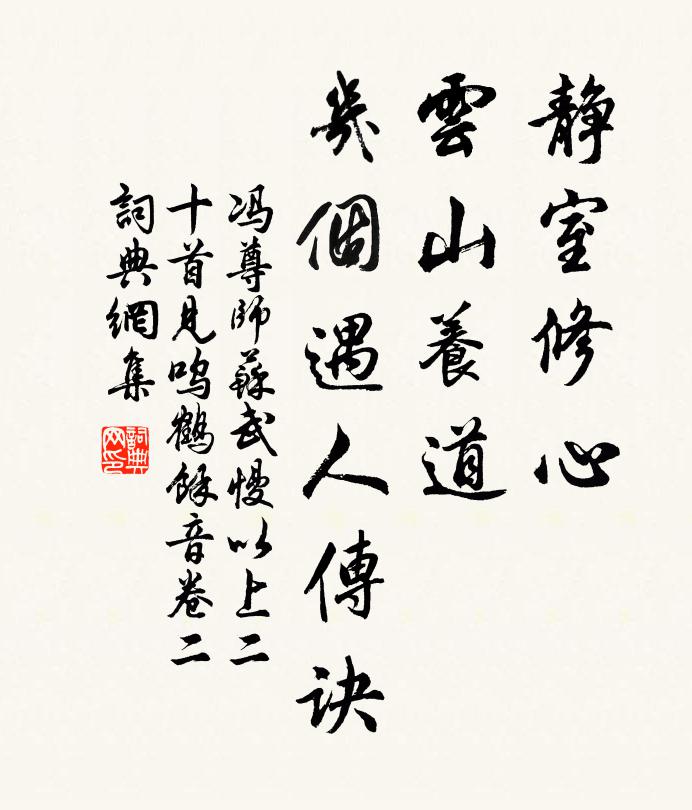 靜室修心
雲山養道
幾個遇人傳訣
冯尊師蘇武慢以上二
十首見鳴鶴餘音卷二
詞典網集
詞典网印